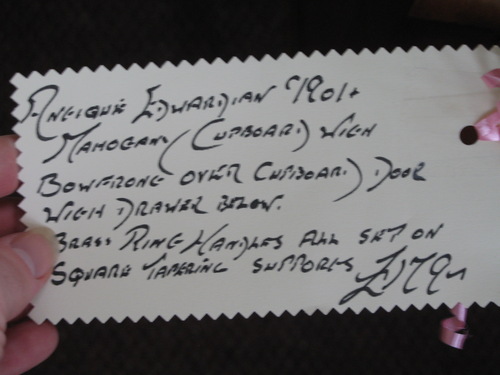 Antique Edwardian "1901+
Mahogany (Cupboard) with
Bowfront over Cupboard) Door
with Drawer below.
Brass Ring Handles all set on
Square Tapering supports